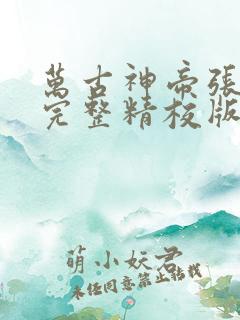 萬古神帝張
完整精校版
萌小妖君
未经同意禁止转载